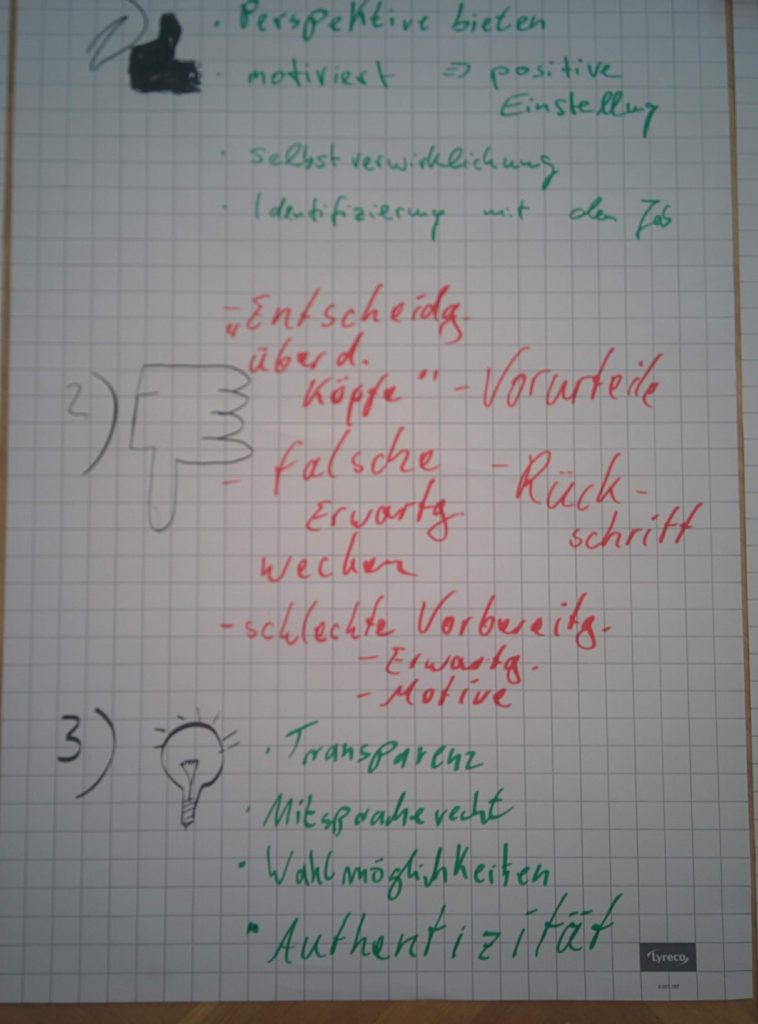 · Perspektive bieten
· motiviert ⇒ positive
Einstellung
· selbstverwirklichung
· Identifizierung mit den Job
2)
- „Entscheidg.
über d.
Köpfe" - Vorurteile
- falsche
Erwartg
wecken
- Rück-
schritt
- schlechte Vorbereitg.
- Erwartg.
- Motive
3)
· Transparenz
· Mitspracherecht
· Wahlmöglichkeiten
· Authentizität
Lyreco